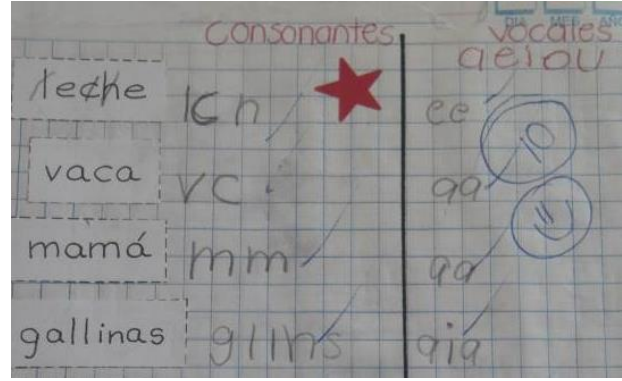 DIA MES AÑO
consonantes vocales
aeiou
leche lch ee
10
vaca vc aa
mamá mm aa
gallinas gllns aia